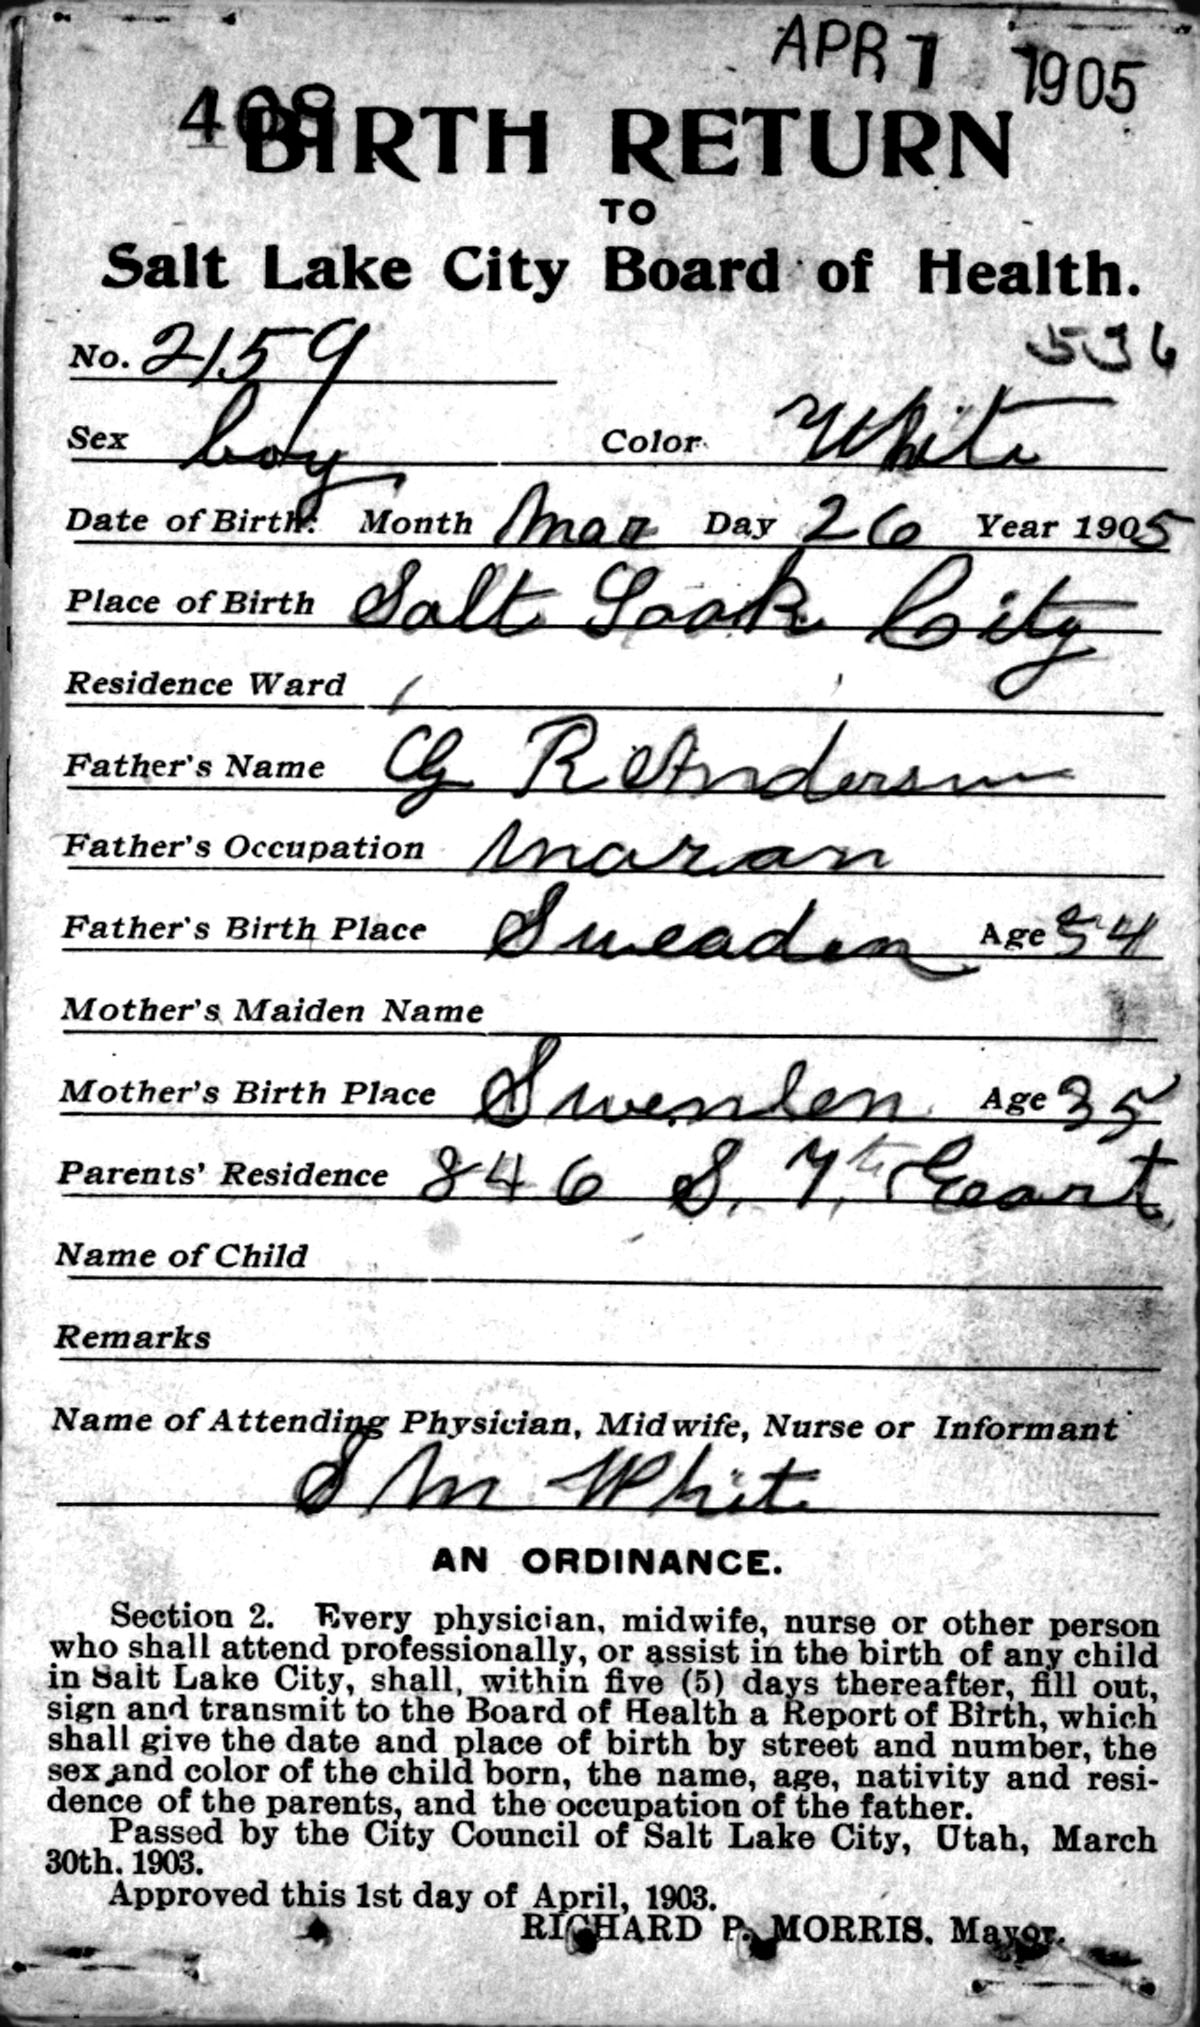 APR 1 1905
408
BIRTH RETURN
TO
Salt Lake City Board of Health.
536
No. 2159
Sex boy Color White
Date of Birth: Month Mar Day 26 Year 1905
Place of Birth Salt Laak City
Residence Ward 1
Father's Name R Anderson
Father's Occupation
Father's Birth Place Sweaden Age 54
Mother's Maiden Name
Mother's Birth Place Age 35
Parents' Residence 846 S. 7th East
Name of Child
Remarks
Name of Attending Physician, Midwife, Nurse or Informant
S M White
AN ORDINANCE.
Section 2. Every physician, midwife, nurse or other person
who shall attend professionally, or assist in the birth of any child
in Salt Lake City, shall, within five (5) days thereafter, fill out,
sign and transmit to the Board of Health a Report of Birth, which
shall give the date and place of birth by street and number, the
sex and color of the child born, the name, age, nativity and resi-
dence of the parents, and the occupation of the father.
Passed by the City Council of Salt Lake City, Utah, March
30th. 1903.
Approved this 1st day of April, 1903.
RICHARD P. MORRIS, Mayor.